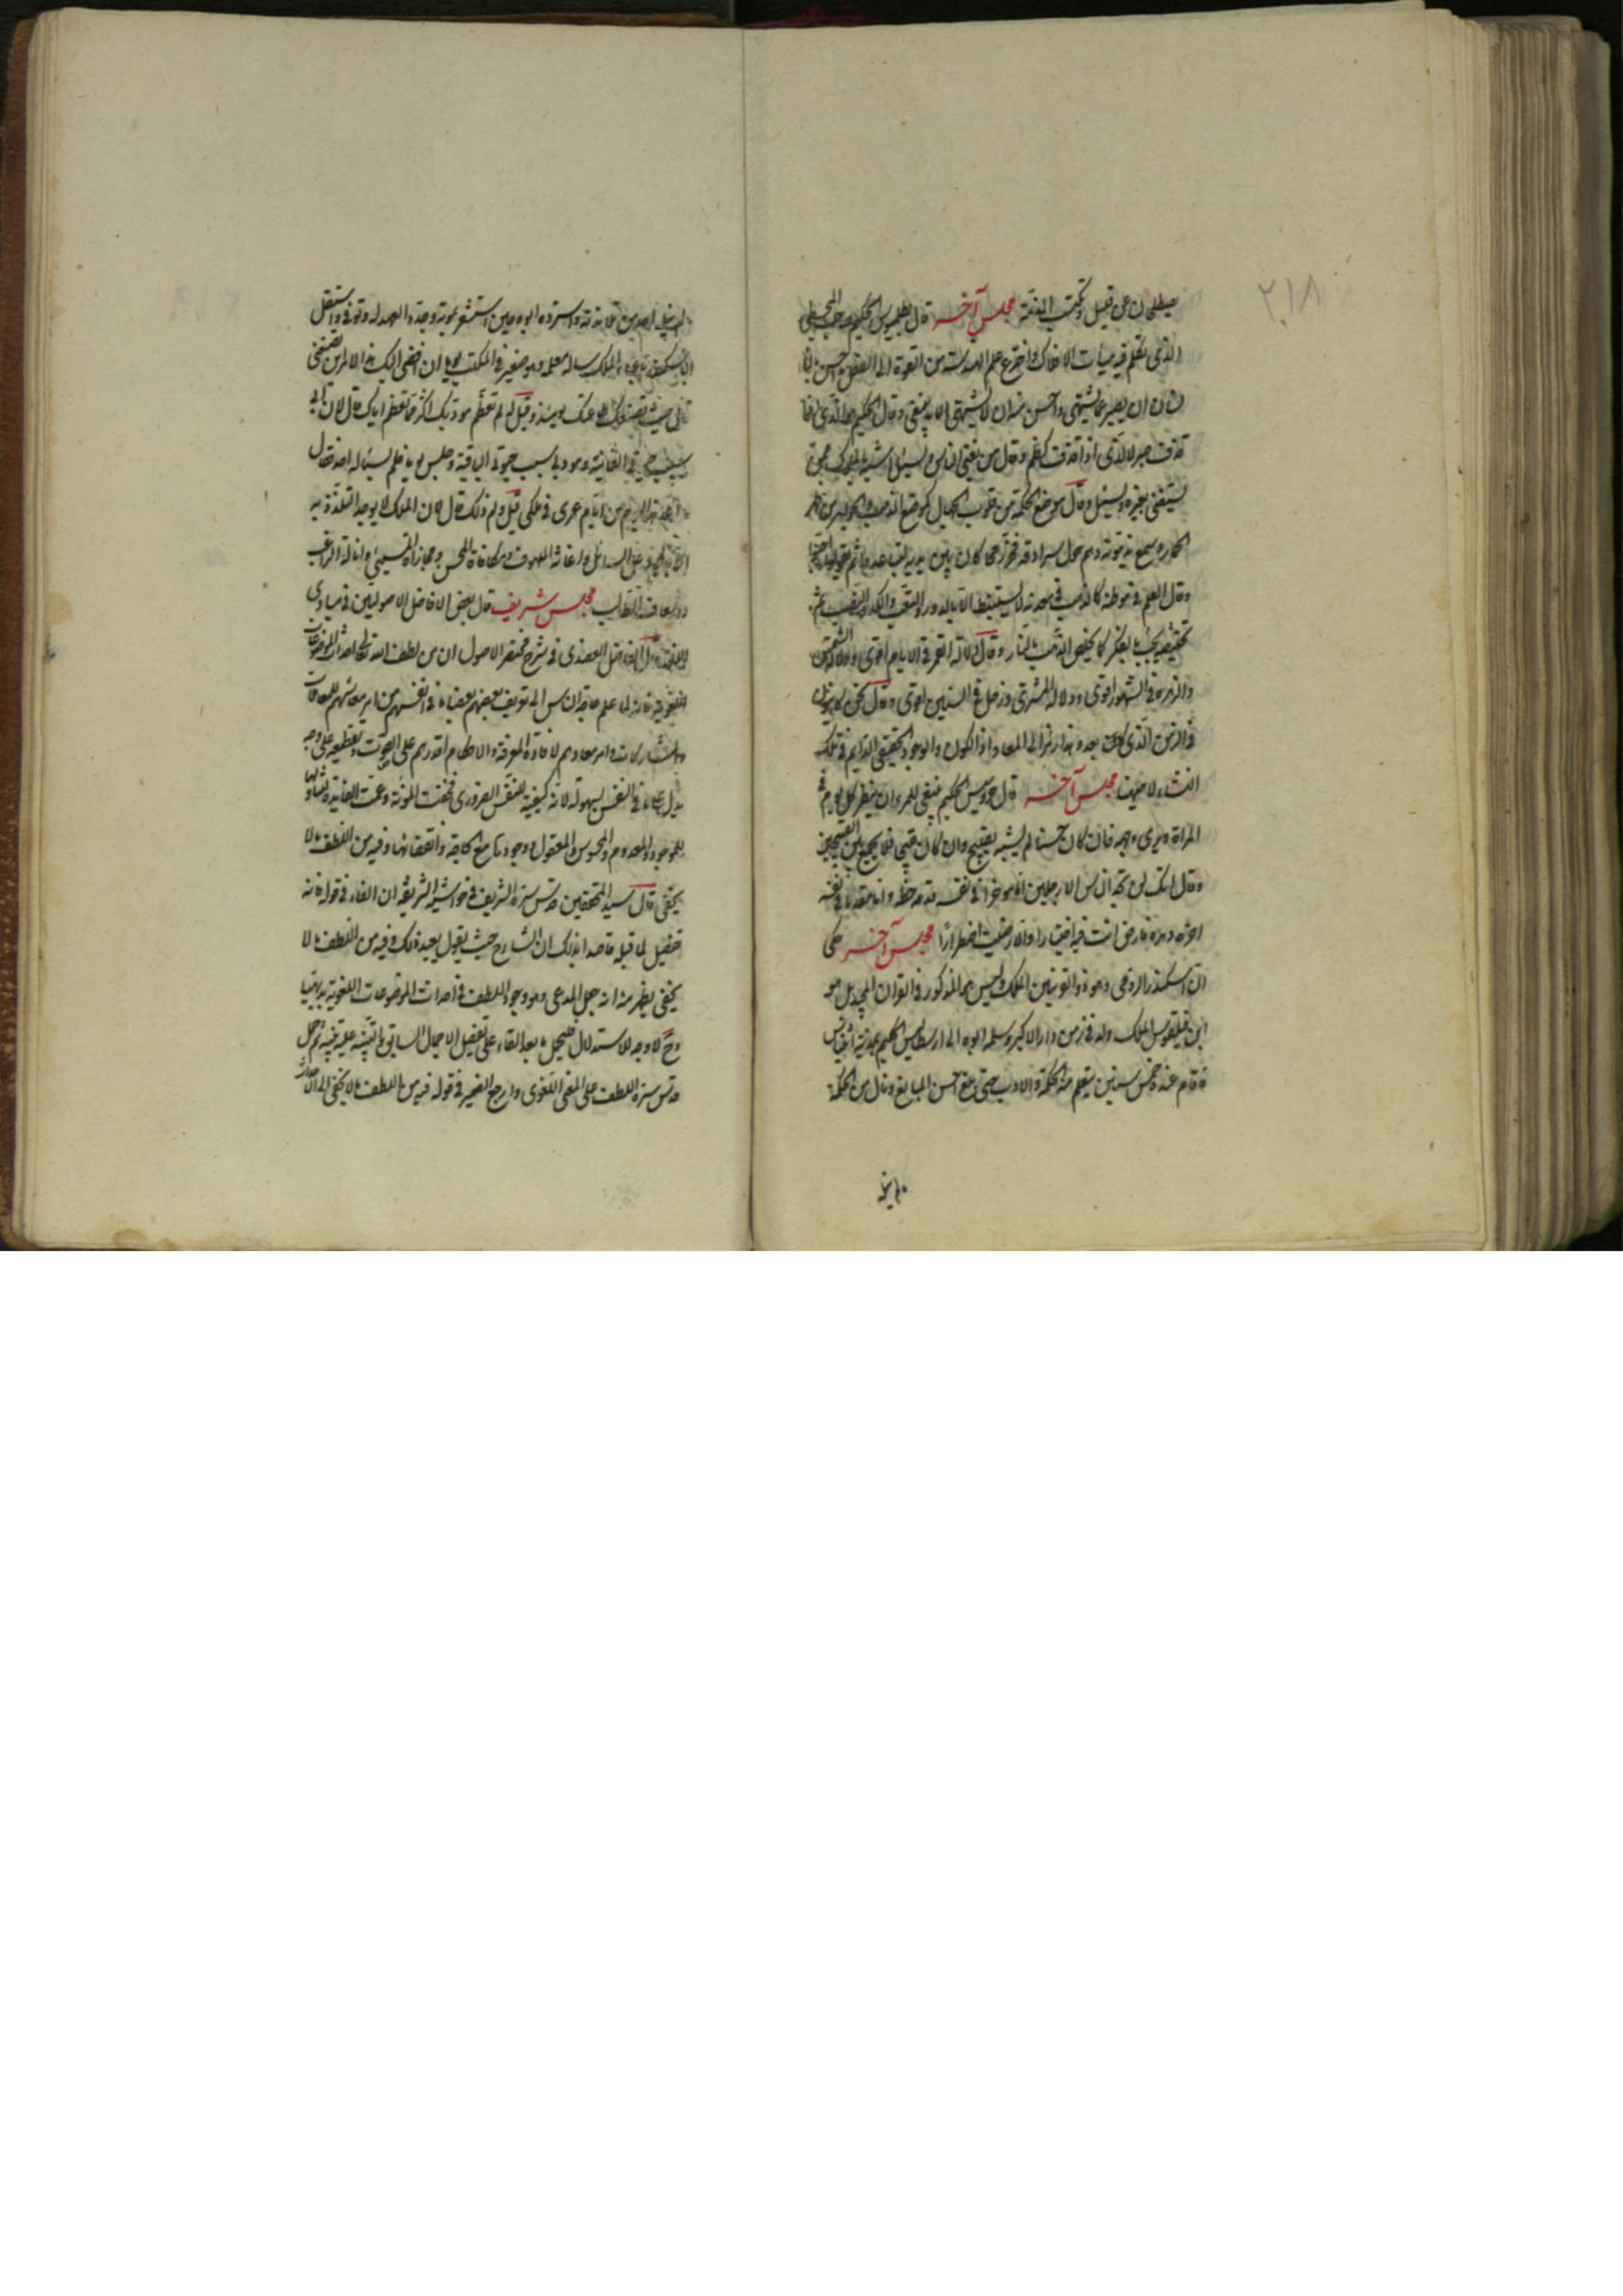 ٢١٨
يصطلحان عن قليل وتكتسب المذمة مجلس آخر قال بطلميوس الحكيم صاحب المجسطي
الذي تكلم فيه هيئات الافلاك واخرج علم الهندسة من القوة الى الفعل ما احسن بالا
نسان ان يصبر عما يشتهي واحسن منه ان لا يشتهي الا ما ينبغي وقال الحكيم هو الذي اذا
صدق صبر لا الذي اذا قذف كظم وقال من يغني الناس ويسئل اشبه بالملوك ممن
يستغني بغيره ويسئل وقال موضع الحكمة من قلوب الجهال كموضع الذهب والجوهر من ظهر
الحمار وسمع
وقال العلم في موطنه كالذهب في معدنه لا يستنبط الا بالدؤوب والتعب والكد والنصب ثم
تخليصه يجب بالفكر كما يخلص الذهب بالنار وقال دلالة القمر في الايام اقوى ودلالة الشمس
والزهرة في الشهور اقوى ودلالة المشتري وزحل في السنين اقوى وقال نحن كاينون
في الزمن الذي يأتي بعد وهذا رمز الى المعاد اذ الكون والوجود الحقيقي الدايم في تلك
النشاء لا هيهنا مجلس آخر قال الحكيم ينبغي للمرء ان ينظر كل يوم في
المراة ويرى وجهه فان كان حسنا لم يشينه بقبيح وان كان قبيحا فلا يجمع بين القبيحين
وقال انك لن تجد الناس الا رجلين اما مؤخرا في نفسه قدمه حظه واما مقدما في نفسه
اخره دهره فارض بما انت فيه اختيارا والا رضيت اضطرارا مجلس آخر حكي
ان اسكندر الرومي وهو ذو القرنين الملك وليس هو المذكور في القران المجيد بل هو
ابن فيلقوس الملك ولد في زمن دارا الاكبر وسلمه ابوه الى ارسطاطاليس الحكيم بمدينة
فاقام عنده خمس سنين يتعلم منه الحكمة والادب حتى بلغ احسن المبالغ ونال من الحكمة
ما لم ينله
ما لم ينله احد من تلامذته واسترده ابوه حين استشعر بموته وجدد العهد له وتوفي واستقل
الاسكندر باعباء الملك سأله معلمه وهو صغير في المكتب ان افضي اليك هذا الامر اين تضعني
قال حيث تضعك طاعتك يومئذ وقيل له لم تعظم مؤدبك اكثر مما تعظم اباك قال لان ابي
سبب حيوتي الفانية ومؤدبي سبب حيوتي الباقية وجلس يوما فلم يسئله احد فقال
ما اعد هذا اليوم من ايام عمري في ملكي قيل ولم ذلك قال لان الملك لا يوجد التلذذ به
الا بالجود على السائل واغاثة الملهوف ومكافاة المحسن ومجازاة المسيئ وانالة الراغب
واسعاف الطالب مجلس شريف قال بعض الافاضل الاصوليين في مبادي
اللغة قال الفاضل العضدي في شرح مختصر الاصول ان من لطف الله تعالى احداث الموضوعات
اللغوية فانه لما علم حاجة الناس الى تعريف بعضهم بعضا ما في انفسهم من امر معاشهم للمعاملات
والمشاركات وامر معادهم لافادة المعرفة والاحكام اقدرهم على الصوت وتقطيعه على وجه
يدل على ما في النفس بسهولة لانه كيفية للنفس الضروري فخفت المؤنة وعمت الفايدة لتناولها
للموجود والمعدوم والمحسوس والمعقول ووجودها مع الحاجة وانقضائها وفيه من اللطف ما لا
يخفى قال سيد المحققين قدس سره الشريف في حواشيه الشريفة ان الفاء في قوله فانه
تفصيل لما قبله قاصدا بذلك ان الشارح حيث يقول بعيد ذلك وفيه من اللطف ما لا
يخفى يظهر منه انه جعل المدعى وهو وجود اللطف في احداث الموضوعات اللغوية بديهيا
وح لا وجه للاستدلال فليحمل ما بعد الفاء على تفصيل الاجمال السابق
قدس سره اللطف على المعنى اللغوي وارجع الضمير في قوله فيه من اللطف ما لا يخفى الى